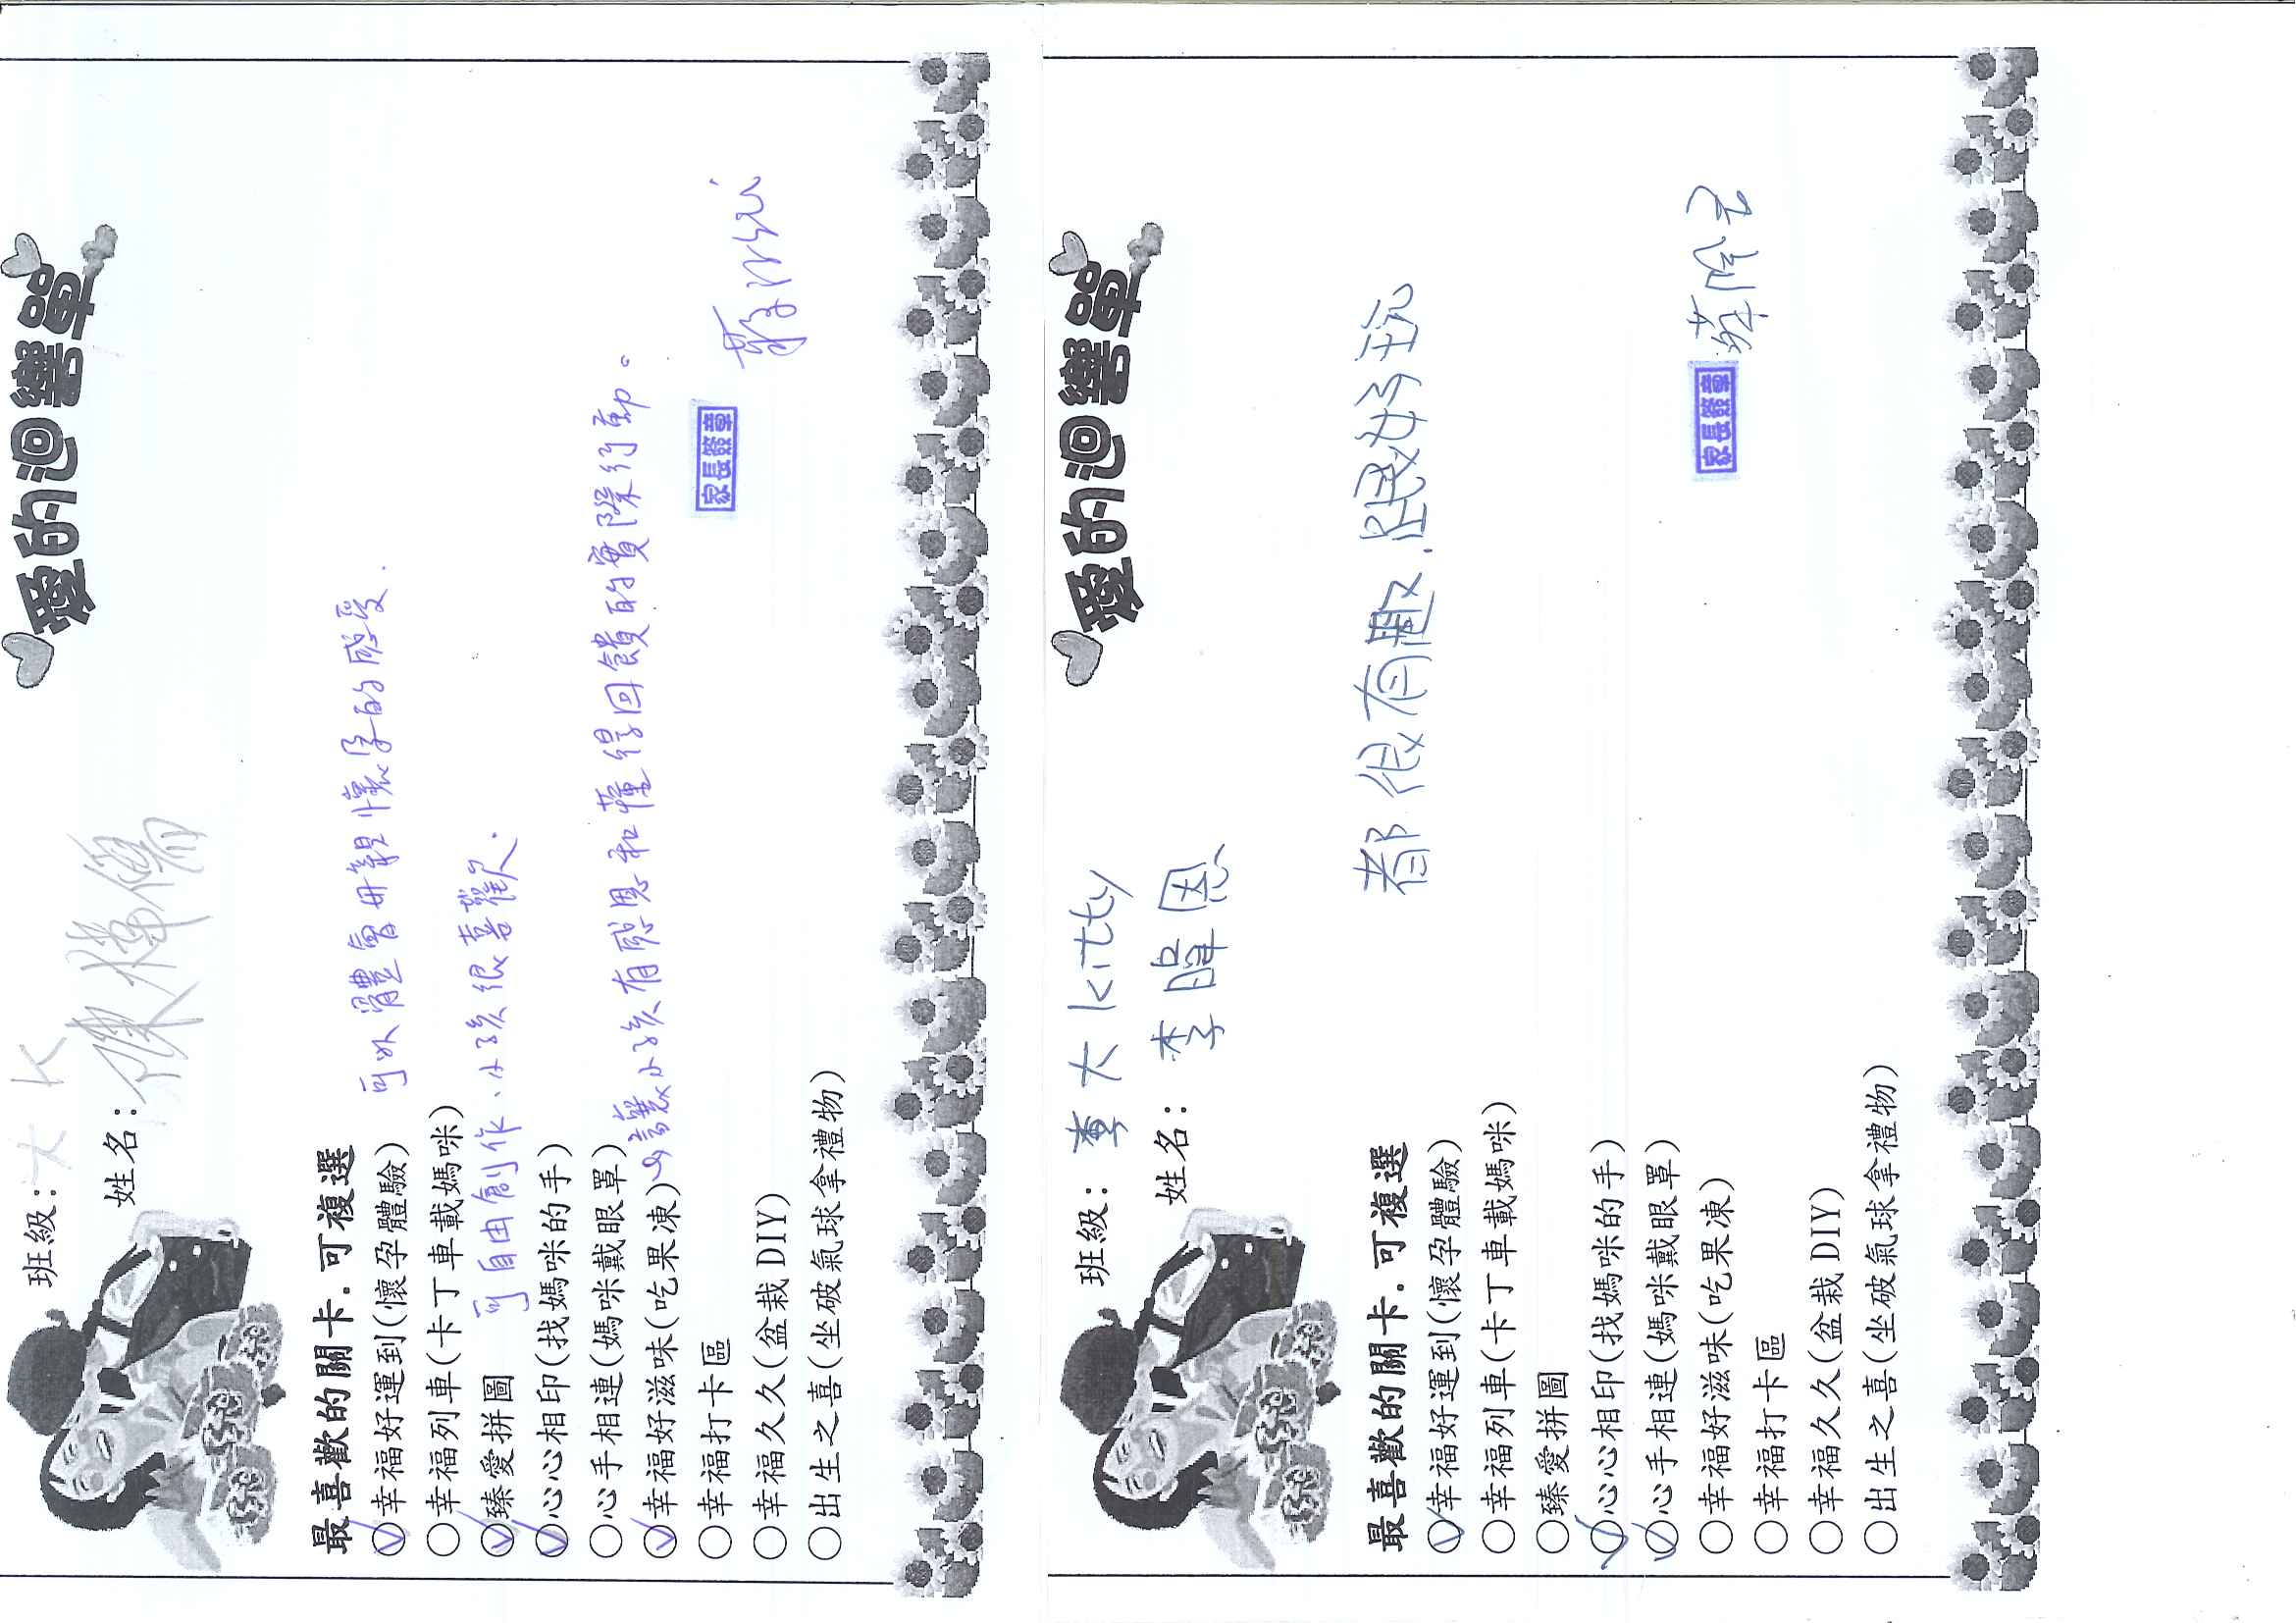 愛的迴響單
班級: 大 K
姓名: 陳
最喜歡的關卡. 可複選
○幸福好運到(懷孕體驗) 可以體會母親懷孕的感受.
○幸福列車(卡丁車載媽咪)
○臻愛拼圖 可自由創作、小孩很喜歡.
○心心相印(找媽咪的手)
○心手相連(媽咪戴眼罩)
○幸福好滋味(吃果凍) 讓小孩有感恩和懂得回饋的實際行動。
○幸福打卡區
○幸福久久(盆栽DIY)
○出生之喜(坐破氣球拿禮物)
家長簽章
愛的迴響單
班級: 大 kitty
姓名: 李暐恩
最喜歡的關卡. 可複選
都很有趣.跟好玩
○幸福好運到(懷孕體驗)
○幸福列車(卡丁車載媽咪)
○臻愛拼圖
○心心相印(找媽咪的手)
○心手相連(媽咪戴眼罩)
○幸福好滋味(吃果凍)
○幸福打卡區
○幸福久久(盆栽DIY)
○出生之喜(坐破氣球拿禮物)
家長簽章